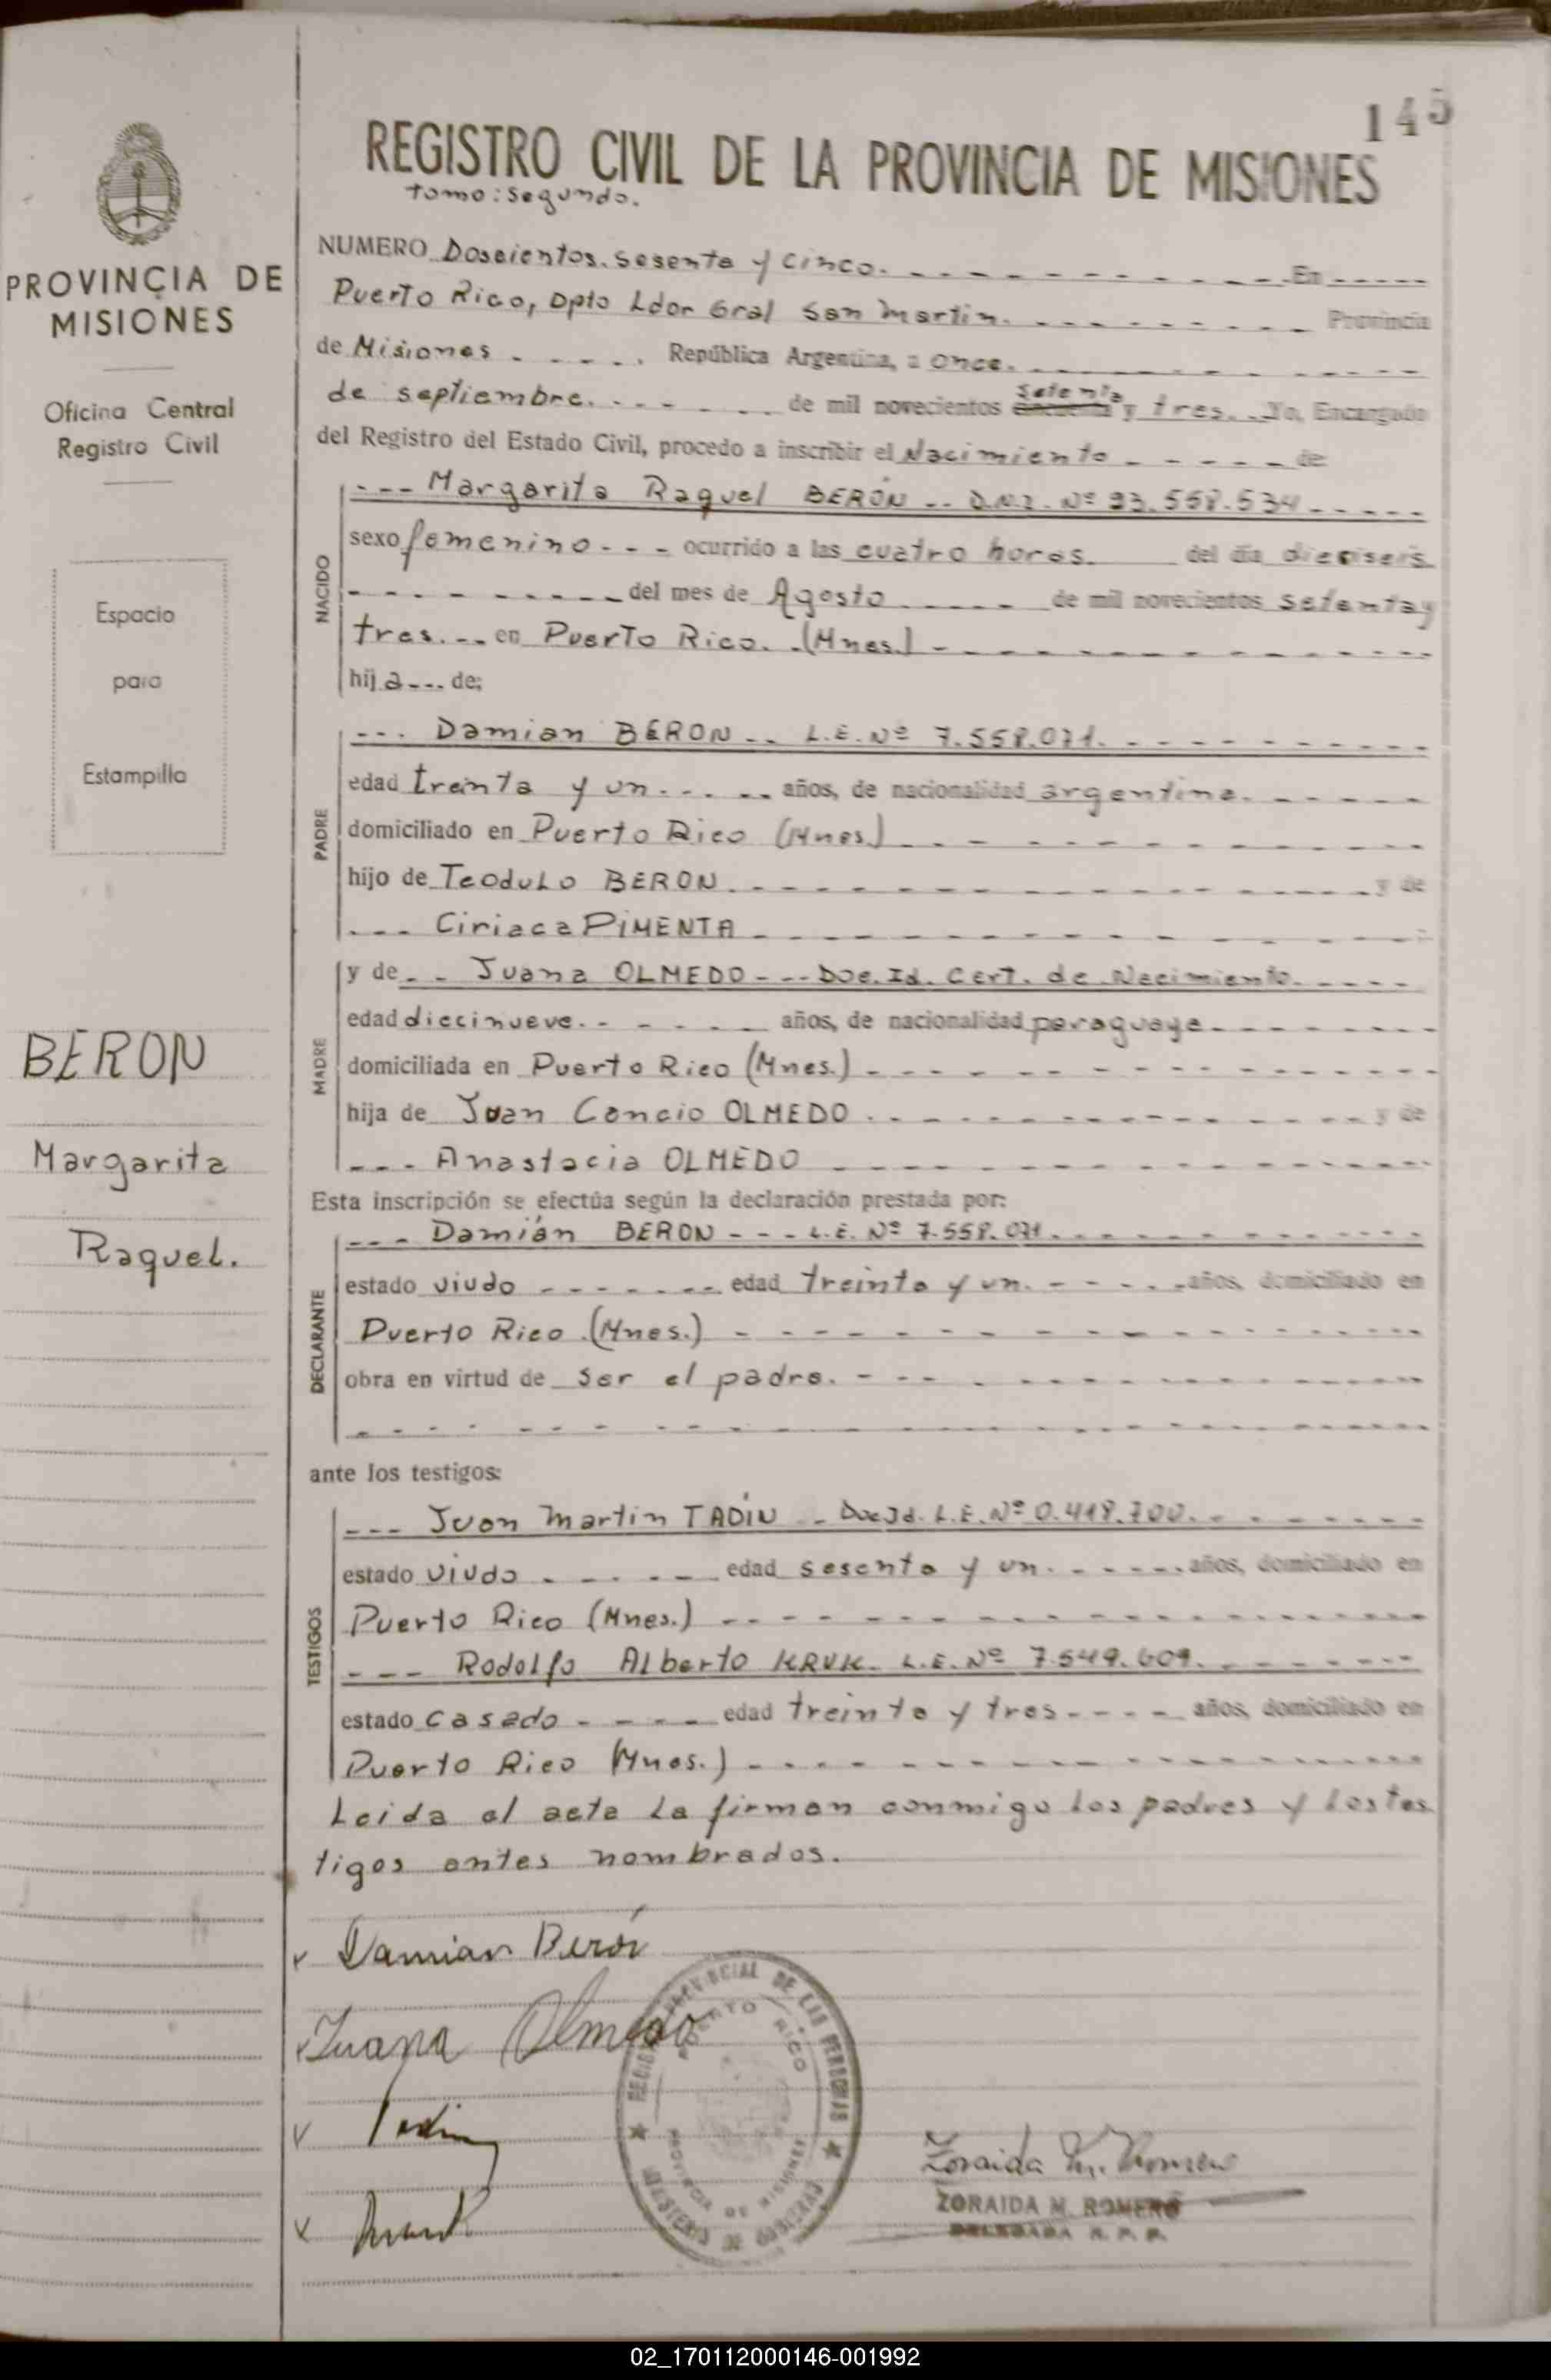 145
REGISTRO CIVIL DE LA PROVINCIA DE MISIONES
tomo: segundo.
PROVINCIA DE
MISIONES
Oficina Central
Registro Civil
Espacio
para
Estampilla
BERON
Margarita
Raquel.
NUMERO Doscientos sesenta y cinco. En
Puerto Rico, Dpto Ldor Gral San Martin. Provincia
de Misiones República Argentina, a once.
setenta
de septiembre. de mil novecientos cincuenta y tres. Yo, Encargado
del Registro del Estado Civil, procedo a inscribir el Nacimiento de
NACIDO
Margarita Raquel BERÓN D.N.I. Nº 23.558.534
sexo femenino ocurrido a las cuatro horas. del día dieciseis
del mes de Agosto de mil novecientos setenta y
tres. en Puerto Rico. (Mnes.)
hija de;
PADRE
Damian BERON L.E. Nº 7.558.071.
edad treinta y un años, de nacionalidad argentina.
domiciliado en Puerto Rico (Mnes.)
hijo de Teodulo BERON. y de
Ciriaca PIMENTA
MADRE
y de Juana OLMEDO Doc. Id. Cert. de Nacimiento.
edad diecinueve. años, de nacionalidad paraguaya
domiciliada en Puerto Rico (Mnes.)
hija de Juan Cancio OLMEDO. y de
Anastacia OLMEDO
Esta inscripción se efectúa según la declaración prestada por:
DECLARANTE
Damián BERON L.E. Nº 7.558.071
estado viudo edad treinta y un. años, domiciliado en
Puerto Rico (Mnes.)
obra en virtud de ser el padre.
ante los testigos:
TESTIGOS
Juan Martin TADIN Doc Id. L.E. Nº 0.418.700.
estado viudo edad sesenta y un. años, domiciliado en
Puerto Rico (Mnes.)
Rodolfo Alberto KRUK L.E. Nº 7.549.609.
estado casado edad treinta y tres años, domiciliado en
Puerto Rico (Mnes.)
Leida el acta la firman conmigo los padres y los tes
tigos antes nombrados.
Damian Berón
Juana Olmedo
Tadin
REGISTRO PROVINCIAL DE LAS PERSONAS
PUERTO RICO
PROVINCIA DE MISIONES
MINISTERIO DE GOBIERNO
Zoraida M. Romero
ZORAIDA M. ROMERO
DELEGADA R. P. P.
02_170112000146-001992